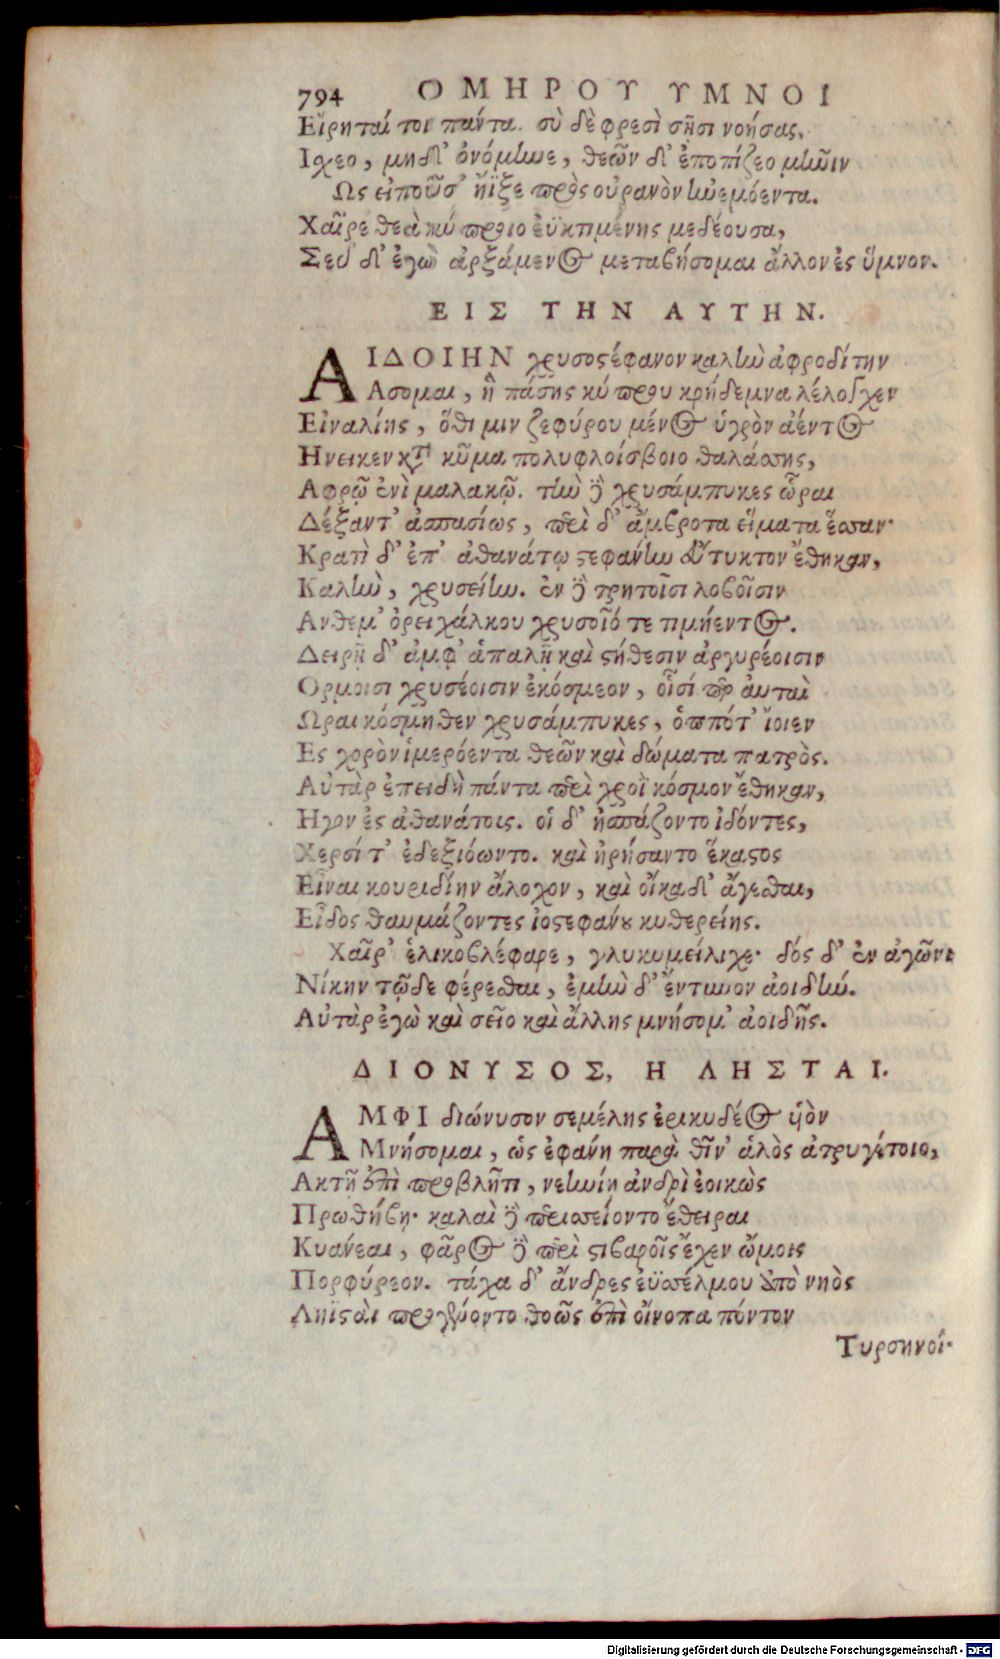 794 ΟΜΗΡΟΥ ΥΜΝΟΙ
Εἴρηταί τοι πάντα. σὺ δὲ φρεσὶ σῇσι νοήσας,
Ισχεο, μηδ' ὀνόμηνε, θεῶν δ' ἐποπίζεο μῆνιν
Ως εἰποῦσ' ἤϊξε πρὸς οὐρανὸν ἠνεμόεντα.
Χαῖρε θεὰ κύπροιο ἐϋκτιμένης μεδέουσα,
Σεῦ δ' ἐγὼ ἀρξάμενος μεταβήσομαι ἄλλον ἐς ὕμνον.
ΕΙΣ ΤΗΝ ΑΥΤΗΝ.
ΑΙΔΟΙΗΝ χρυσοστέφανον καλὴν ἀφροδίτην
Ασομαι, ἣ πάσης κύπρου κρήδεμνα λέλογχεν
Εἰναλίης, ὅθι μιν ζεφύρου μένος ὑγρὸν ἀέντος
Ηνεικεν κατὰ κῦμα πολυφλοίσβοιο θαλάσσης,
Αφρῷ ἐνὶ μαλακῷ. τὴν δὲ χρυσάμπυκες ὧραι
Δέξαντ' ἀσπασίως, περὶ δ' ἄμβροτα εἵματα ἕσσαν·
Κρατὶ δ' ἐπ' ἀθανάτῳ στεφάνην εὔτυκτον ἔθηκαν,
Καλὴν, χρυσείην. ἐν δὲ τρητοῖσι λοβοῖσιν
Ανθεμ' ὀρειχάλκου χρυσοῖό τε τιμήεντος.
Δειρῇ δ' ἀμφ' ἁπαλῇ καὶ στήθεσιν ἀργυρέοισιν
Ορμοισι χρυσέοισιν ἐκόσμεον, οἷσί περ ἀυταὶ
Ωραι κόσμηθεν χρυσάμπυκες, ὁππότ' ἴοιεν
Ες χορὸν ἱμερόεντα θεῶν καὶ δώματα πατρὸς.
Αὐτὰρ ἐπειδὴ πάντα περὶ χροῒ κόσμον ἔθηκαν,
Ηγον ἐς ἀθανάτοις. οἱ δ' ἠσπάζοντο ἰδόντες,
Χερσί τ' ἐδεξιόωντο. καὶ ἠρήσαντο ἕκαστος
Εἶναι κουριδίην ἄλοχον, καὶ οἴκαδ' ἄγεσθαι,
Εἶδος θαυμάζοντες ἰοστεφάνου κυθερείης.
Χαῖρ' ἑλικοβλέφαρε, γλυκυμείλιχε· δός δ' ἐν ἀγῶνι
Νίκην τῷδε φέρεσθαι, ἐμὴν δ' ἔντυνον ἀοιδήν.
Αὐτὰρ ἐγὼ καὶ σεῖο καὶ ἄλλης μνήσομ' ἀοιδῆς.
ΔΙΟΝΥΣΟΣ, Η ΛΗΣΤΑΙ.
ΑΜΦΙ διώνυσον σεμέλης ἐρικυδέος υἱὸν
Μνήσομαι, ὡς ἐφανή παρὰ θῖν' ἁλὸς ἀτρυγέτοιο,
Ακτῇ ἐπὶ προβλῆτι, νεηνίη ἀνδρὶ ἐοικὼς
Πρωθήβη· καλαὶ δὲ περισσείοντο ἔθειραι
Κυανέαι, φᾶρος δὲ περὶ στιβαροῖς ἔχεν ὤμοις
Πορφύρεον. τάχα δ' ἄνδρες ἐϋσσέλμου ἀπὸ νηὸς
Ληϊσταὶ προγένοντο θοῶς ἐπὶ οἴνοπα πόντον
Τυρσηνοί·
Digitalisierung gefördert durch die Deutsche Forschungsgemeinschaft - DFG